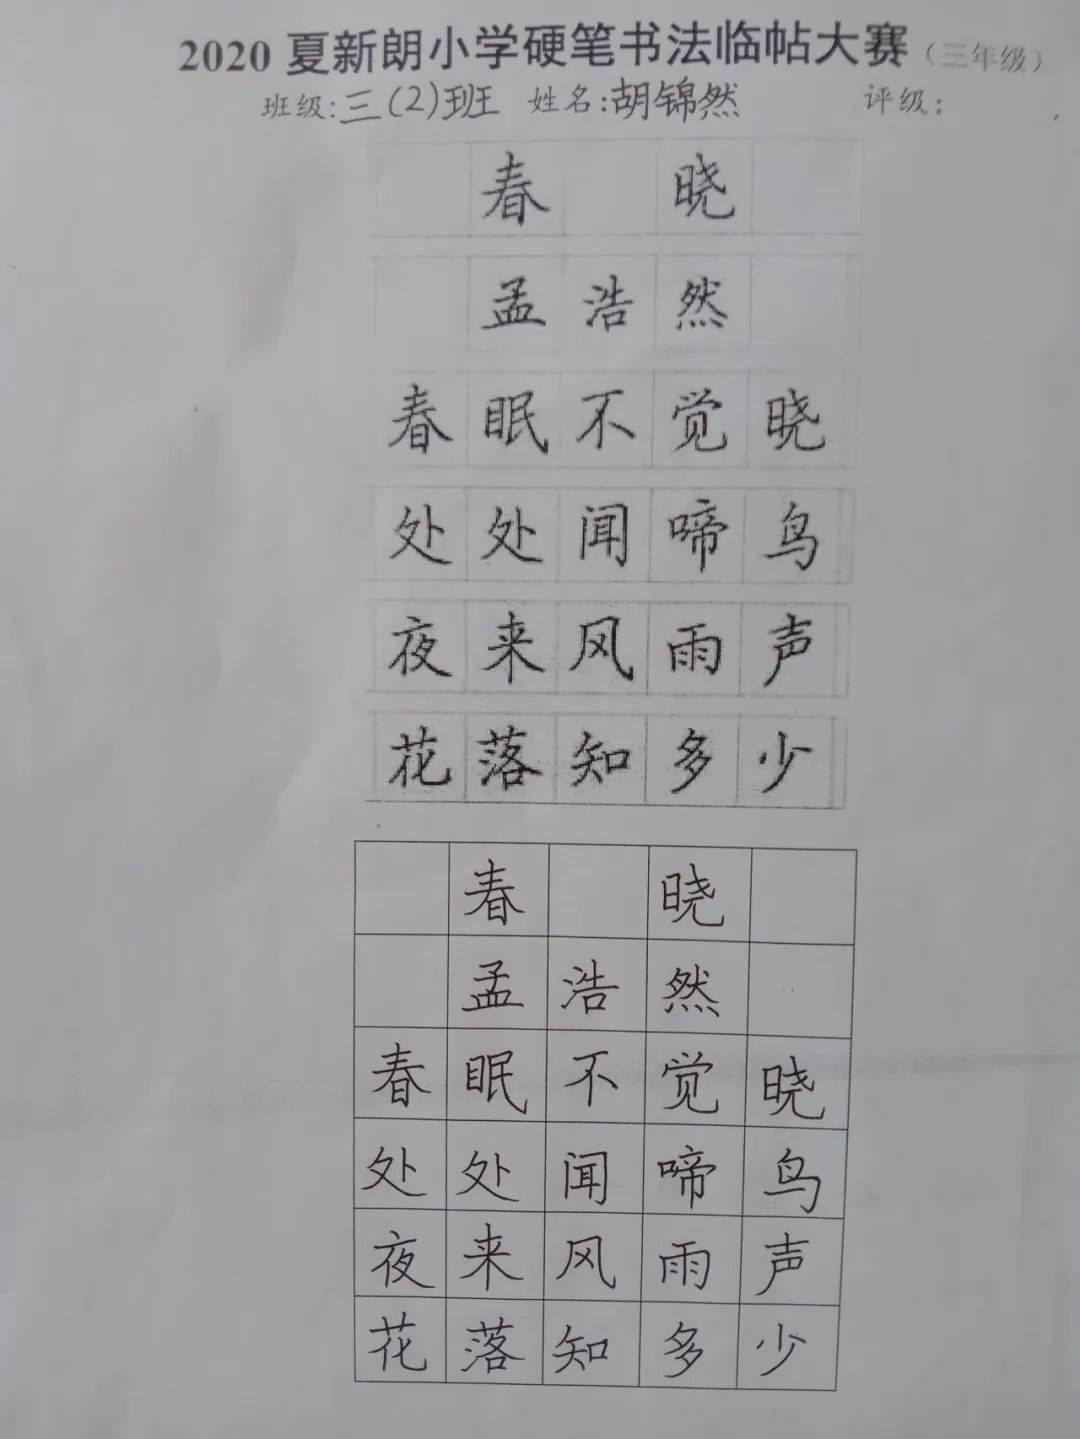 2020 夏新朗小学硬笔书法临帖大赛（三年级）
班级:三(2)班 姓名:胡锦然 评级:
春 晓
孟 浩 然
春 眠 不 觉 晓
处 处 闻 啼 鸟
夜 来 风 雨 声
花 落 知 多 少
春 晓
孟 浩 然
春 眠 不 觉 晓
处 处 闻 啼 鸟
夜 来 风 雨 声
花 落 知 多 少